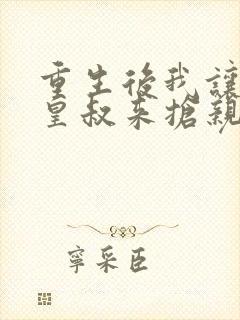 重生後我讓
皇叔来搶親
寧采臣